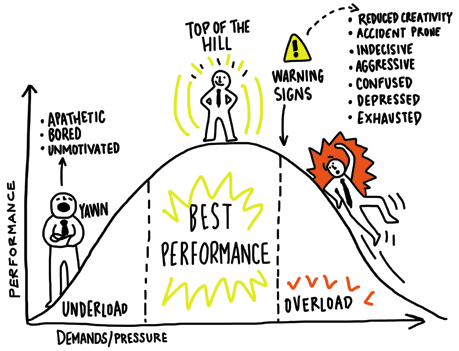 TOP OF THE
HILL
!
WARNING
SIGNS
• REDUCED CREATIVITY
• ACCIDENT PRONE
• INDECISIVE
• AGGRESSIVE
• CONFUSED
• DEPRESSED
• EXHAUSTED
• APATHETIC
• BORED
• UNMOTIVATED
YAWN
BEST
PERFORMANCE
UNDERLOAD
OVERLOAD
PERFORMANCE
DEMANDS/PRESSURE